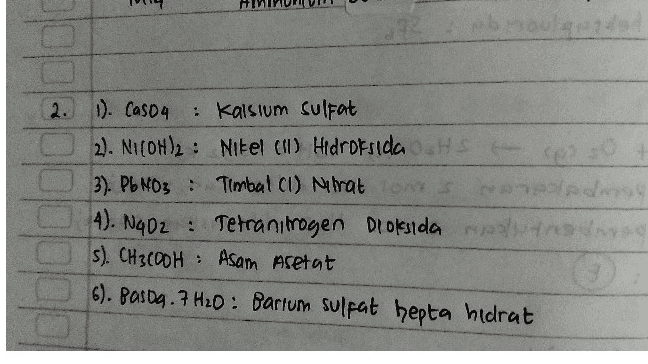 2. 1). CaSO4 : Kalsium Sulfat
2). Ni(OH)2 : Nikel (II) Hidroksida
3). PbNO3 : Timbal (I) Nitrat
4). N4O2 : Tetranitrogen Dioksida
5). CH3COOH : Asam Asetat
6). BaSO4 . 7 H2O : Barium sulfat hepta hidrat